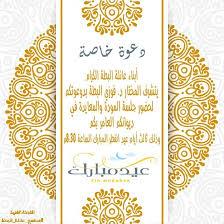 دعوة خاصة
أبناء عائلة البطة الكرام
يتشرف المختار د. فوزي البطة بدعوتكم
لحضور جلسة المودة والمعايدة في
ديوانكم العامر بكم
وذلك ثالث أيام عيد الفطر المبارك الساعة 8:30م
عيد مبارك
EID MUBARAK